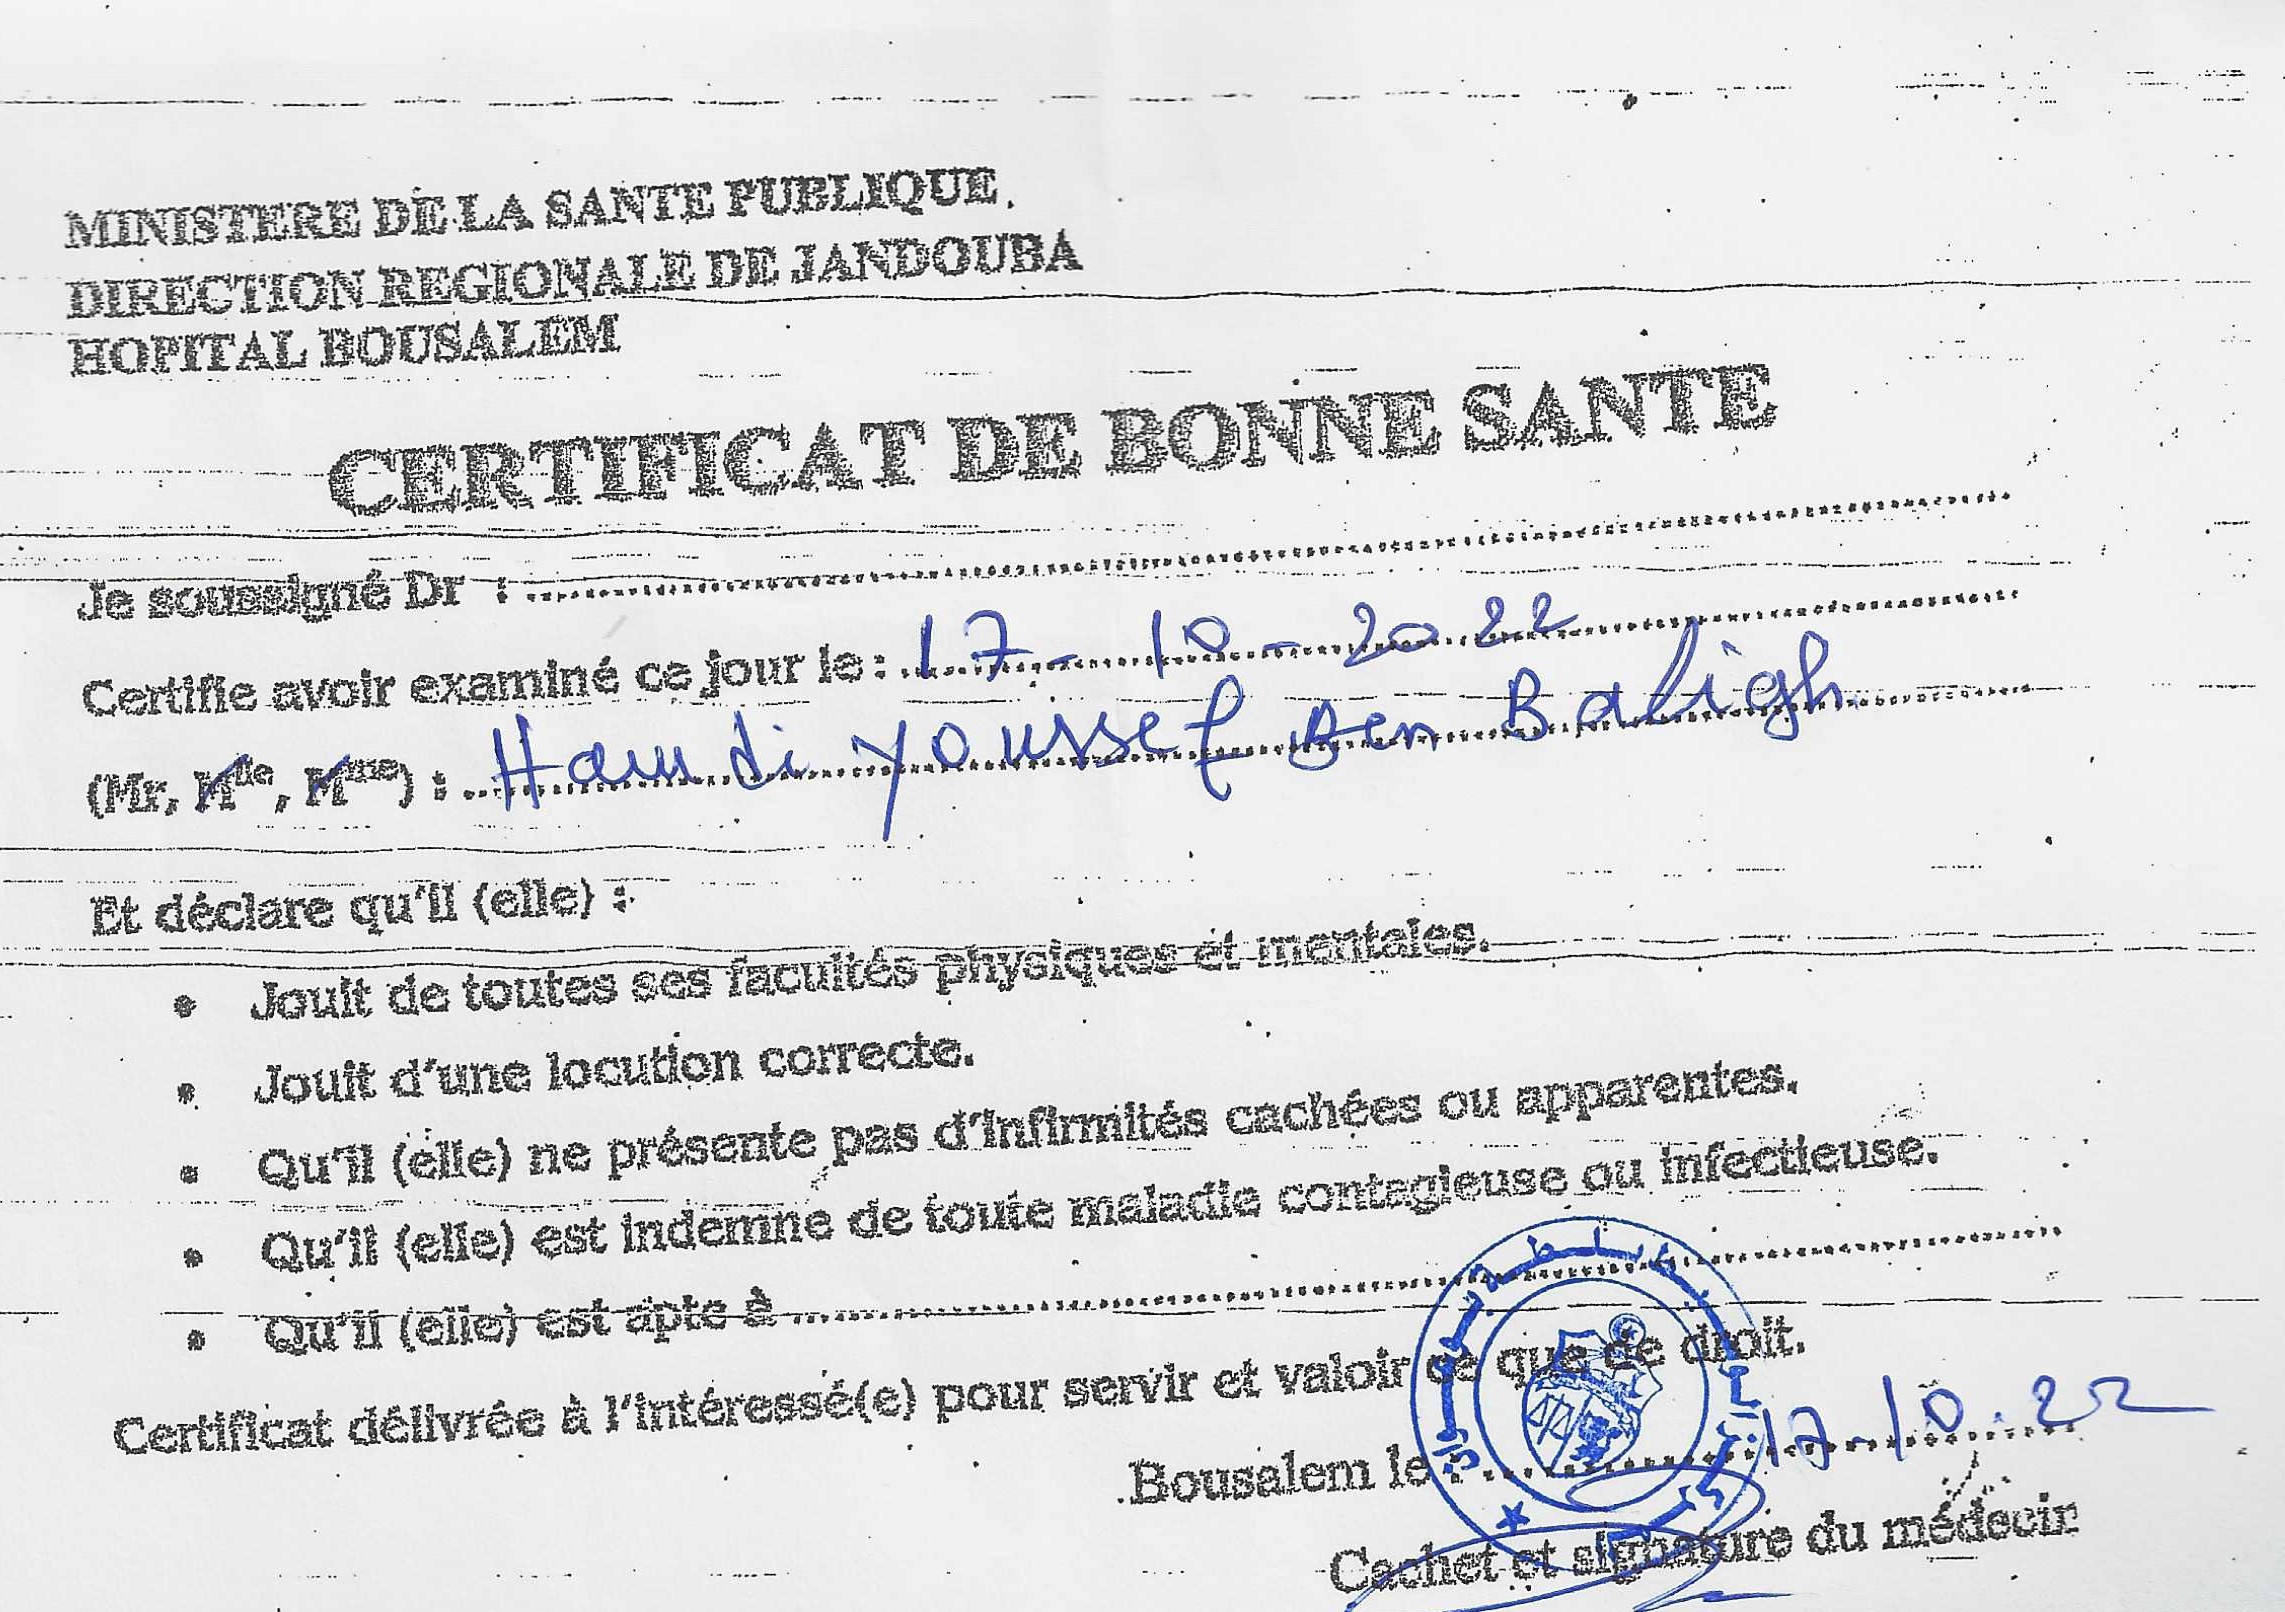 MINISTERE DE LA SANTE PUBLIQUE
DIRECTION REGIONALE DE JANDOUBA
HOPITAL BOUSALEM
CERTIFICAT DE BONNE SANTE
Je soussigné Dr : ........................
Certifie avoir examiné ce jour le : 17-10-2022
(Mr, Mlle, Mme) : Hamdi Youssef Ben Baligh
Et déclare qu'il (elle) :
• Jouit de toutes ses facultés physiques et mentales.
• Jouit d'une locution correcte.
• Qu'il (elle) ne présente pas d'infirmités cachées ou apparentes.
• Qu'il (elle) est indemne de toute maladie contagieuse ou infectieuse.
• Qu'il (elle) est apte à ........................
Certificat délivrée à l'intéressé(e) pour servir et valoir ce que de droit.
Bousalem le : 17-10.22
Cachet et signature du médecin